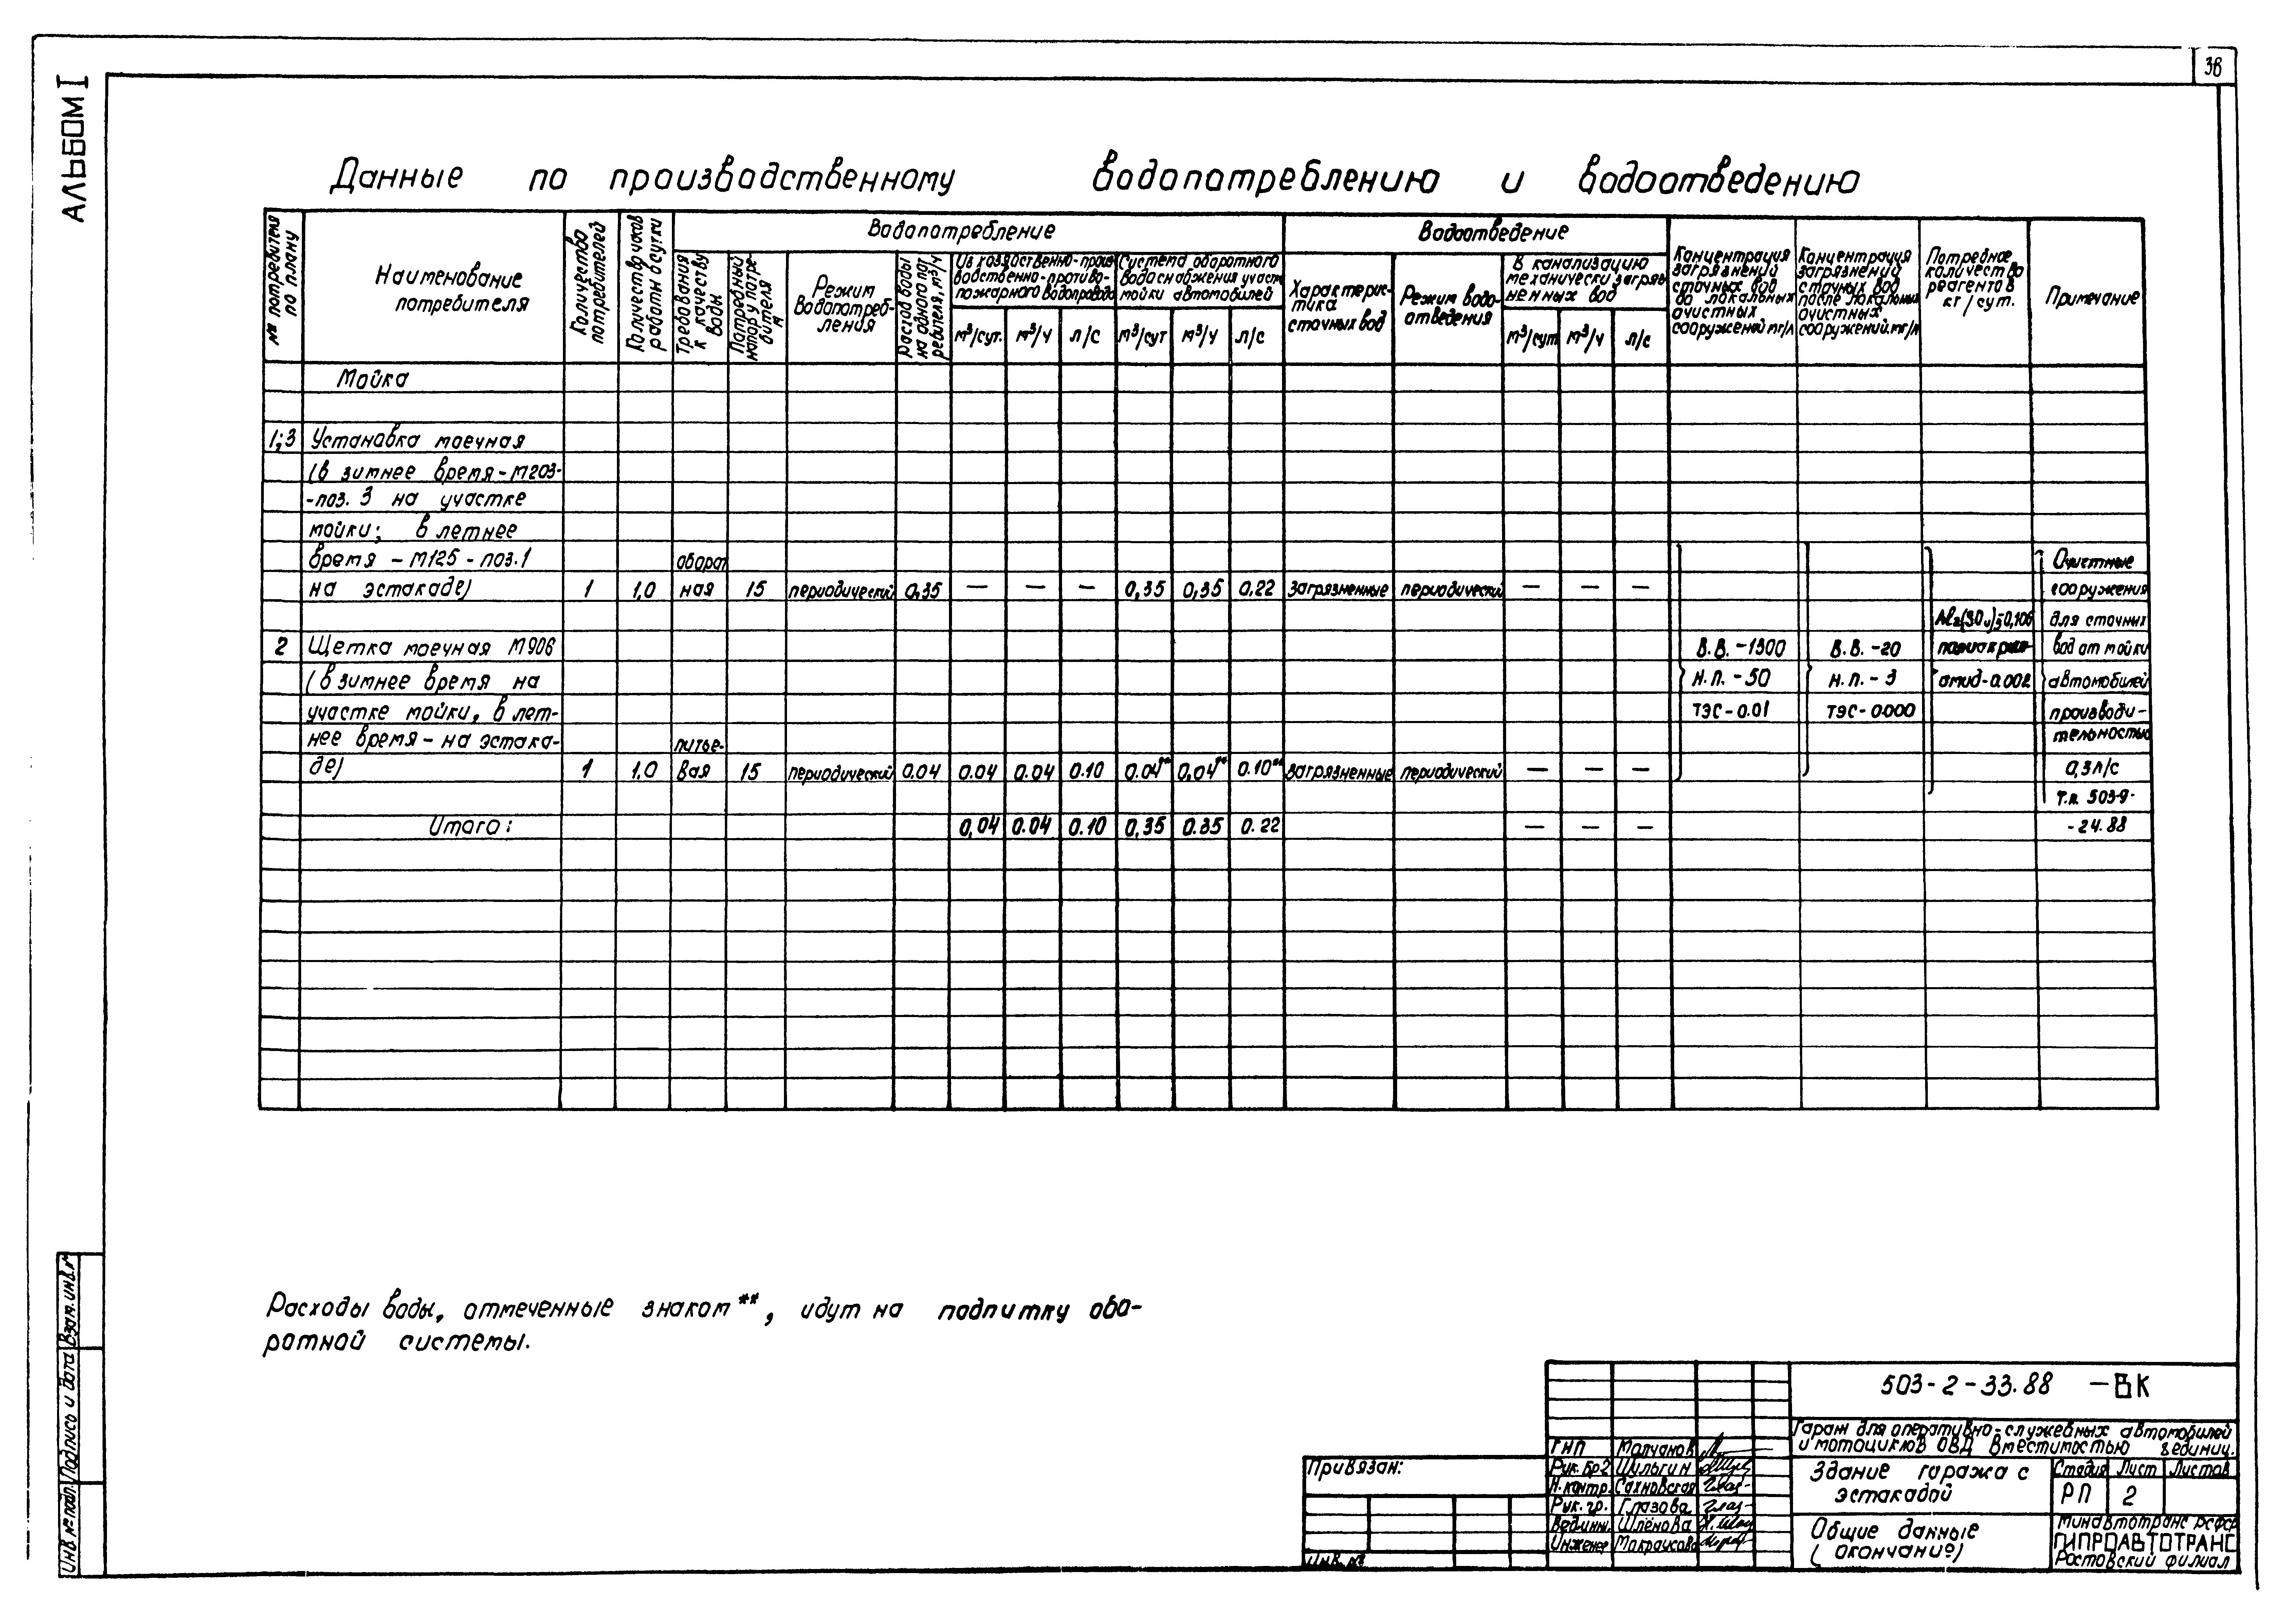 38
АЛЬБОМ I
Данные по производственному водопотреблению и водоотведению
№ потребителя по плану
Наименование потребителя
Количество потребителей
Количество часов работы в сутки
Водопотребление
Требования к качеству воды
Потребный напор у потребителя м
Режим водопотребления
Расход воды на одного потребителя, м³/ч
Из хозяйственно-производственно-противопожарного водопровода
Система оборотного водоснабжения участ. мойки автомобилей
м³/сут. м³/ч л/с м³/сут м³/ч л/с
Водоотведение
Характеристика сточных вод
Режим водоотведения
В канализацию механически загрязненных вод
м³/сут м³/ч л/с
Концентрация загрязнений сточных вод до локальных очистных сооружений мг/л
Концентрация загрязнений сточных вод после локальных очистных сооружений мг/л
Потребное количество реагентов кг/сут.
Примечание
Мойка
1;3 Установка моечная
(в зимнее время-М203-
-поз. 3 на участке
мойки; в летнее
время - М125 - поз.1 оборот
на эстакаде) 1 1,0 ная 15 периодический 0,35 — — — 0,35 0,35 0.22 загрязненные периодический — — —
2 Щетка моечная М906
(в зимнее время на
участке мойки, в лет-
нее время - на эстака- питье-
де) 1 1,0 вая 15 периодический 0.04 0.04 0.04 0.10 0.04** 0,04** 0.10** загрязненные периодический — — —
Итого: 0,04 0.04 0.10 0,35 0.35 0.22 — — —
В.В. -1300
Н.П. - 50
ТЭС - 0.01
В.В. -20
Н.П. - 3
ТЭС - 0.000
амид-0.002
Очистные
сооружения
для сточных
вод от мойки
автомобилей
производи-
тельностью
0,3л/с
Т.п. 503-9-
-24.88
Расходы воды, отмеченные знаком **, идут на подпитку обо-
ротной системы.
Инв № подл. Подпись и дата Взам. инв. №
Привязан:
Инв. №
ГИП Молчанов
Рук. бр2 Шульгин
Н. контр. Сахновская
Рук. гр. Глазова
Вед.инж. Шлёнова
Инженер
503-2-33.88 -ВК
Гараж для оперативно-служебных автомобилей
и мотоциклов ОВД вместимостью единиц.
Здание гаража с
эстакадой
Стадия Лист Листов
РП 2
Общие данные
(окончание)
Минавтотранс РСФСР
ГИПРОАВТОТРАНС
Ростовский филиал